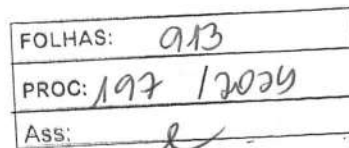 FOLHAS: 913
PROC: 197 / 2024
Ass: